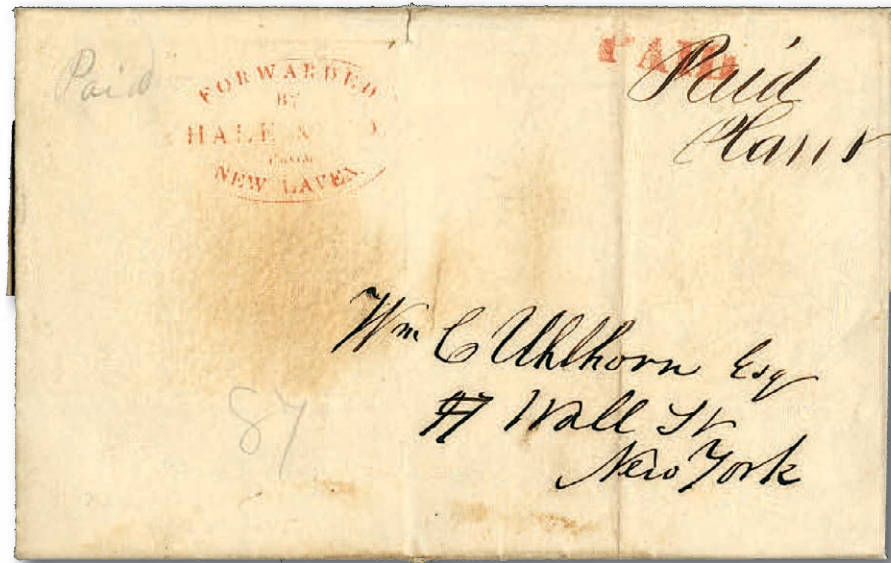 Paid
FORWARDED
BY
HALE &
FROM
NEW HAVEN
PAID
Paid
Wm C Uhlhorn Esq
Wall St
New York
87